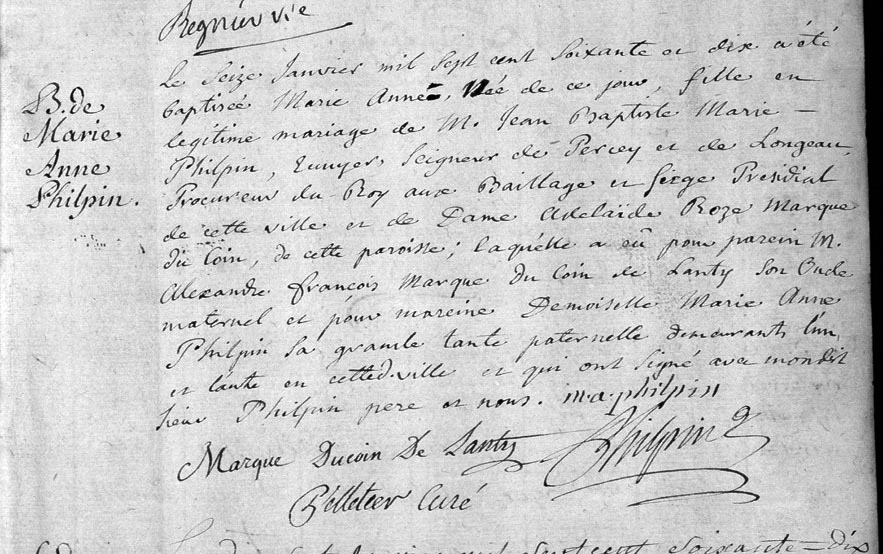 Regnier vic
B. de
Marie
Anne
Philpin.
Le Seize Janvier mil Sept cent Soixante et dix a été
baptiseé Marie Anne, Née de ce jour, fille en
legitime mariage de M. Jean Baptiste Marie —
Philpin, Ecuyer, Seigneur de Percey et de Longeau,
Procureur du Roy aux Baillage et siege Presidial
de cette ville et de Dame Adelaïde Roze Marque
du Coin, de cette paroisse; laquelle a eû pour parein M.
Alexandre françois Marque Du Coin de Lanty Son Oncle
maternel et pour mareine Demoiselle Marie Anne
Philpin Sa grande tante paternelle demeurants l'un
et l'autre en cetted. ville et qui ont Signé avec mondit
Sieur Philpin pere et nous. m.a.philpin
Marque Ducoin De Lanty Philpin
Pelletier Curé
mil Sept cent Soixante-dix